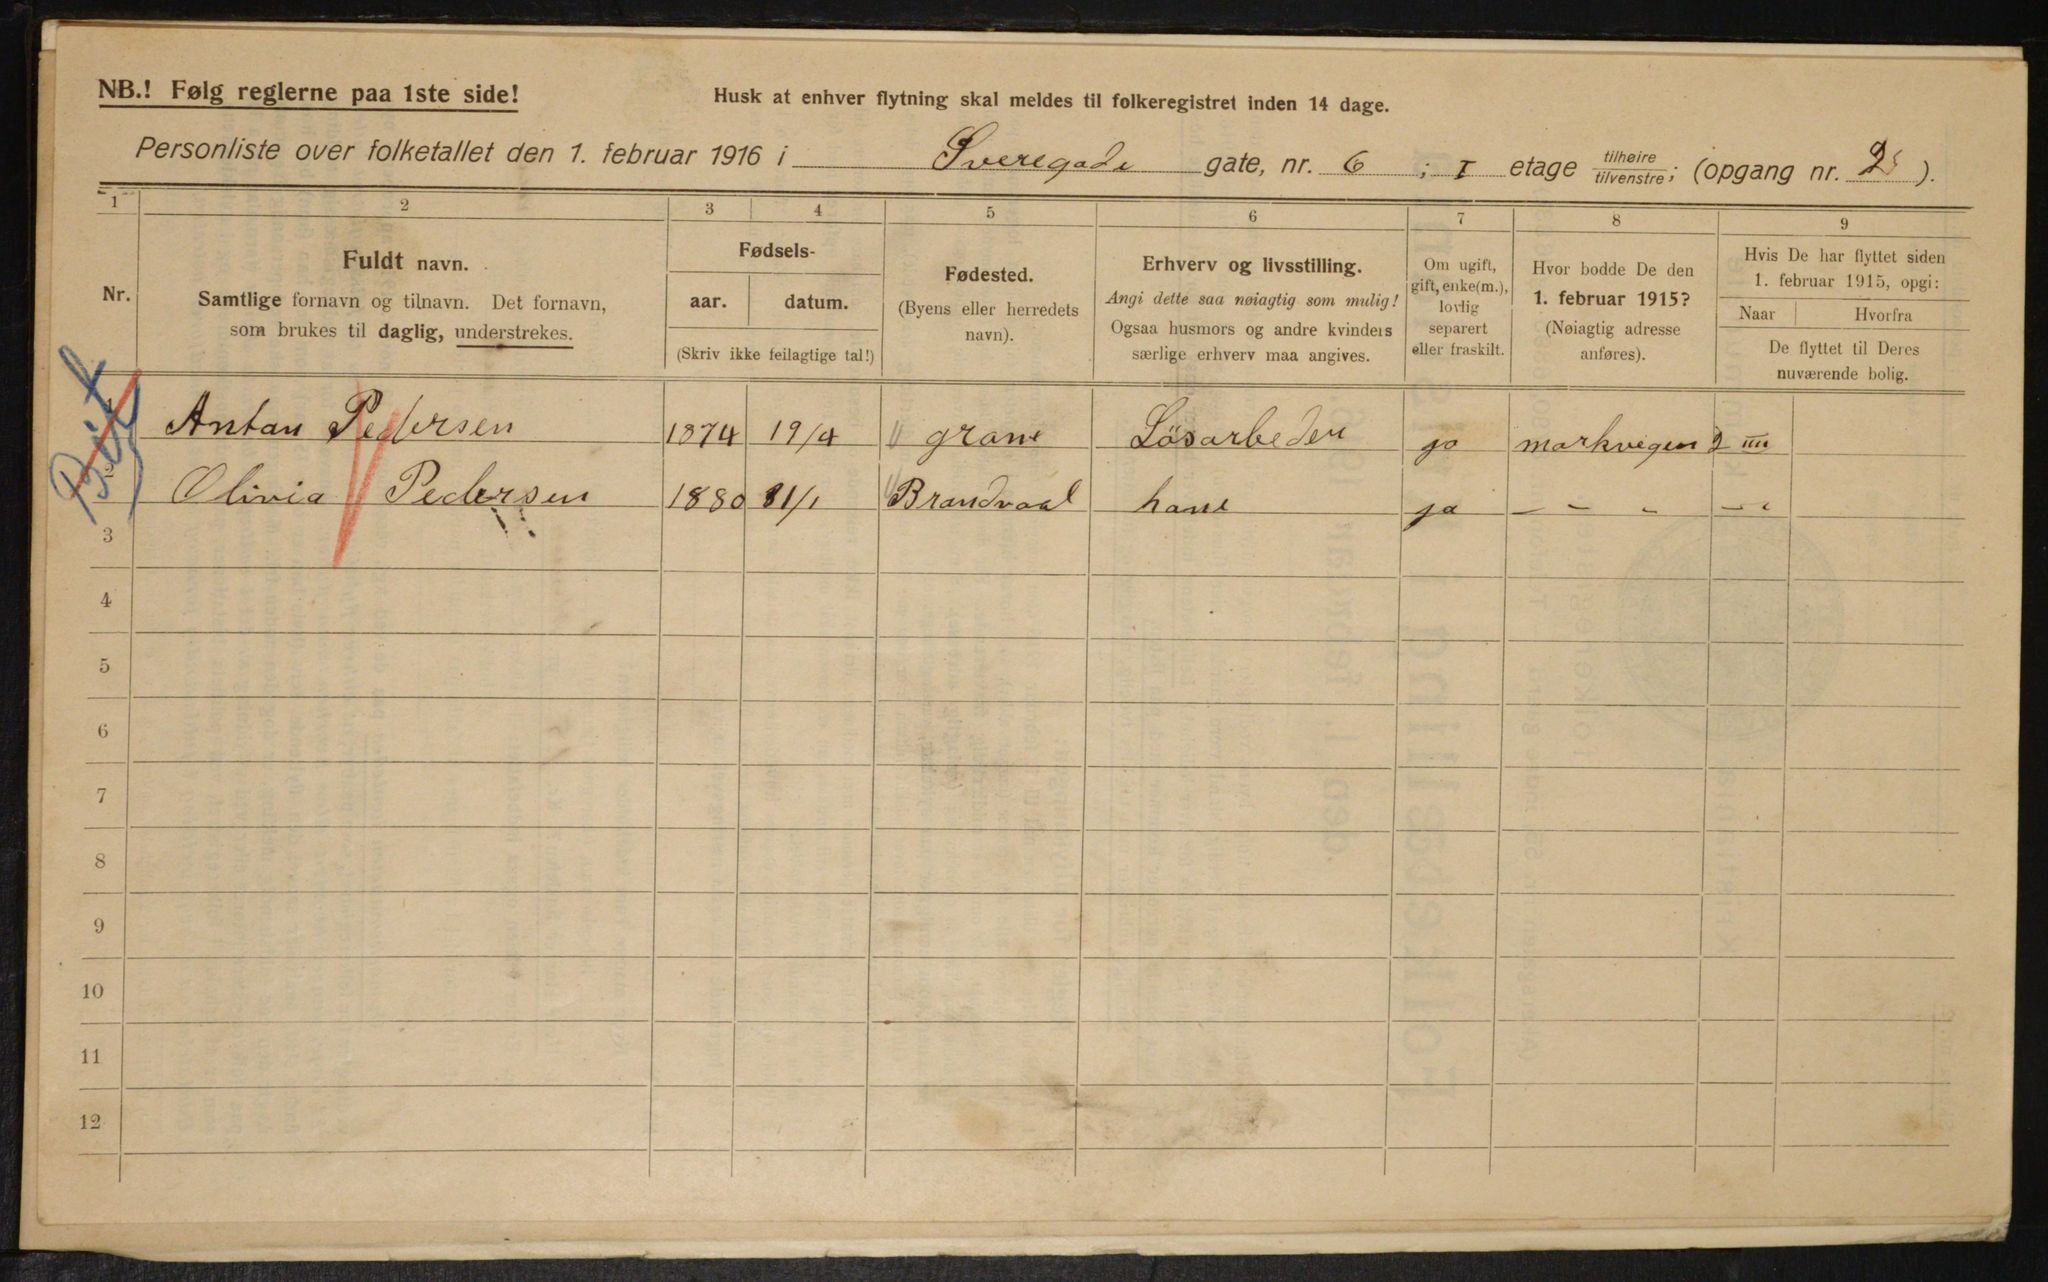 NB.! Følg reglerne paa 1ste side!
Husk at enhver flytning skal meldes til folkeregistret inden 14 dage.
Personliste over folketallet den 1. februar 1916 i Sveregade gate, nr. 6 ; I etage tilhøire/tilvenstre; (opgang nr. 2).
1 2 3 4 5 6 7 8 9
Nr.
Fuldt navn.
Samtlige fornavn og tilnavn. Det fornavn,
som brukes til daglig, understrekes.
Fødsels-
aar. datum.
(Skriv ikke feilagtige tal!)
Fødested.
(Byens eller herredets
navn).
Erhverv og livsstilling.
Angi dette saa nøiagtig som mulig!
Ogsaa husmors og andre kvinders
særlige erhverv maa angives.
Om ugift,
gift, enke(m.),
lovlig
separert
eller fraskilt.
Hvor bodde De den
1. februar 1915?
(Nøiagtig adresse
anføres).
Hvis De har flyttet siden
1. februar 1915, opgi:
Naar Hvorfra
De flyttet til Deres
nuværende bolig.
Antan Pedersen 1874 19/4 " grane Lösarbeder ja markvegen 2 IIII
2 Olivia Pedersen 1880 31/1 " Brandvaal hane ja – – – – –
3
4
5
6
7
8
9
10
11
12